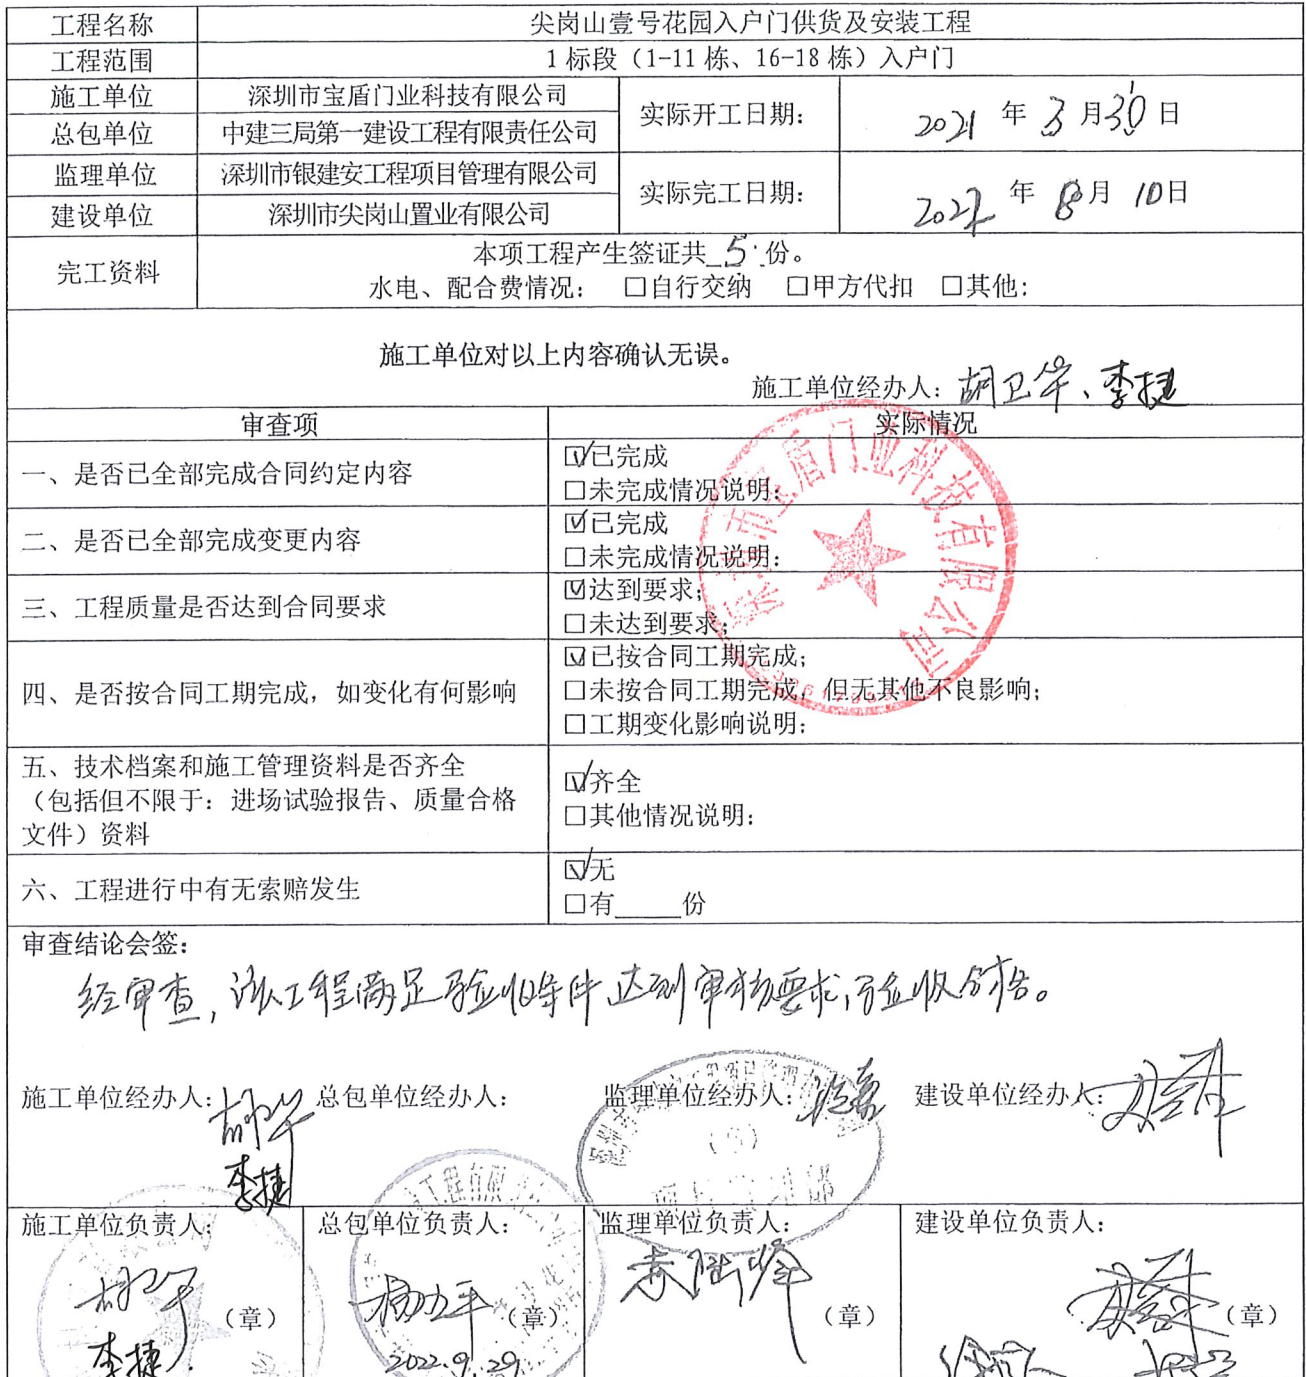 工程名称 尖岗山壹号花园入户门供货及安装工程
工程范围 1标段（1-11栋、16-18栋）入户门
施工单位 深圳市宝盾门业科技有限公司 实际开工日期： 2021 年 3 月 30 日
总包单位 中建三局第一建设工程有限责任公司
监理单位 深圳市银建安工程项目管理有限公司 实际完工日期： 2022 年 8 月 10 日
建设单位 深圳市尖岗山置业有限公司
完工资料 本项工程产生签证共 5 份。
水电、配合费情况： □自行交纳 □甲方代扣 □其他：
施工单位对以上内容确认无误。
施工单位经办人： 李捷
审查项 实际情况
一、是否已全部完成合同约定内容 ☑已完成
□未完成情况说明：
二、是否已全部完成变更内容 ☑已完成
□未完成情况说明：
三、工程质量是否达到合同要求 ☑达到要求；
□未达到要求；
四、是否按合同工期完成，如变化有何影响 ☑已按合同工期完成；
□未按合同工期完成，但无其他不良影响；
□工期变化影响说明：
五、技术档案和施工管理资料是否齐全
（包括但不限于：进场试验报告、质量合格
文件）资料
☑齐全
□其他情况说明：
六、工程进行中有无索赔发生 ☑无
□有_____份
深圳市宝盾门业科技有限公司
审查结论会签：
经审查，该工程满足验收条件，达到审核要求，验收合格。
施工单位经办人： 总包单位经办人： 监理单位经办人： 建设单位经办人：
李捷
施工单位负责人： 总包单位负责人： 监理单位负责人： 建设单位负责人：
（章） （章） （章） （章）
李捷 2022.9.29